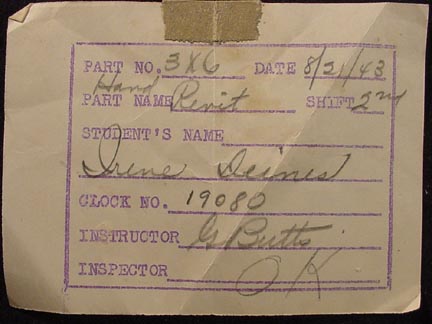 PART NO. 3X6 DATE 8/21/43
Hand
PART NAME Revit SHIFT 2nd
STUDENT'S NAME
Irene Deines
CLOCK NO. 19080
INSTRUCTOR G Butts
INSPECTOR OK